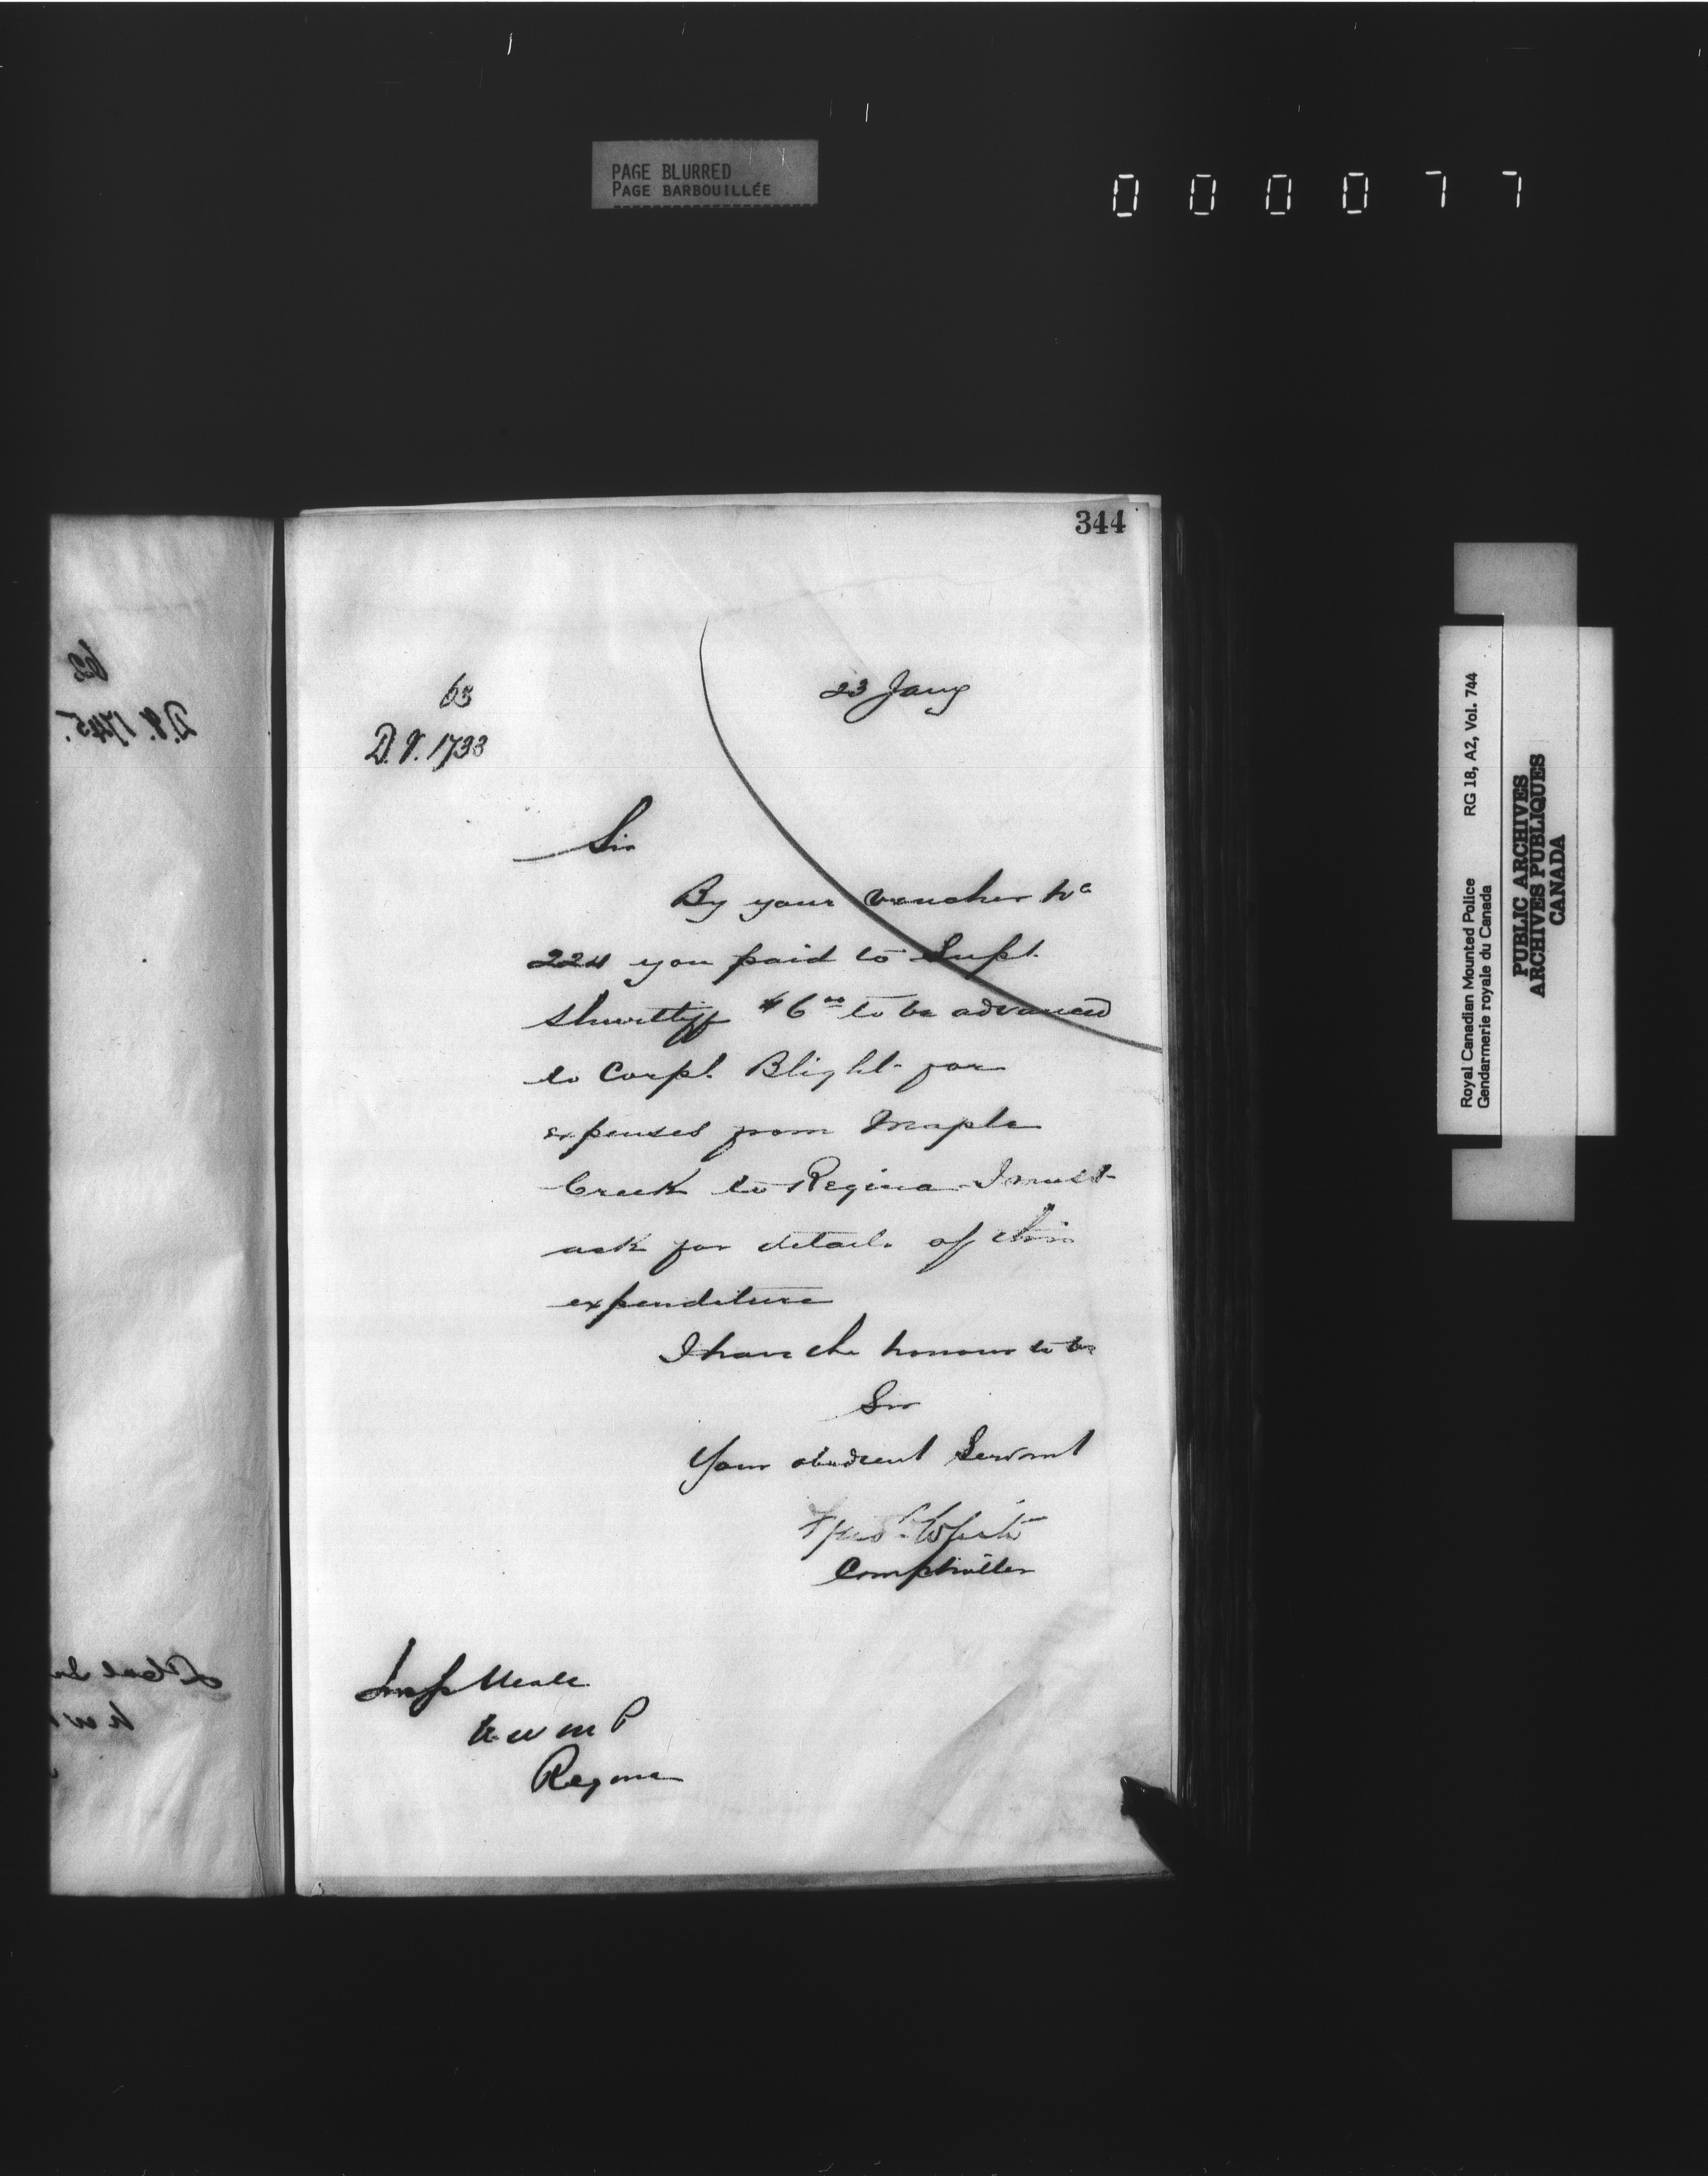 PAGE BLURRED
PAGE BARBOUILLÉE
000077
344
63
D.V. 1733
23 Jany
Sir
By your voucher No
224 you paid to Supt.
Shurtliff $6 00 to be advanced
to Corpl. Blight for
expenses from Maple
Creek to Regina I must
ask for details of this
expenditure
I have the honour to be
Sir
Your obedient Servant
White
Comptroller
Insp Neale
N W M P
Regina
D.V. 1745.
Royal Canadian Mounted Police RG 18, A2, Vol. 744
Gendarmerie royale du Canada
PUBLIC ARCHIVES
ARCHIVES PUBLIQUES
CANADA